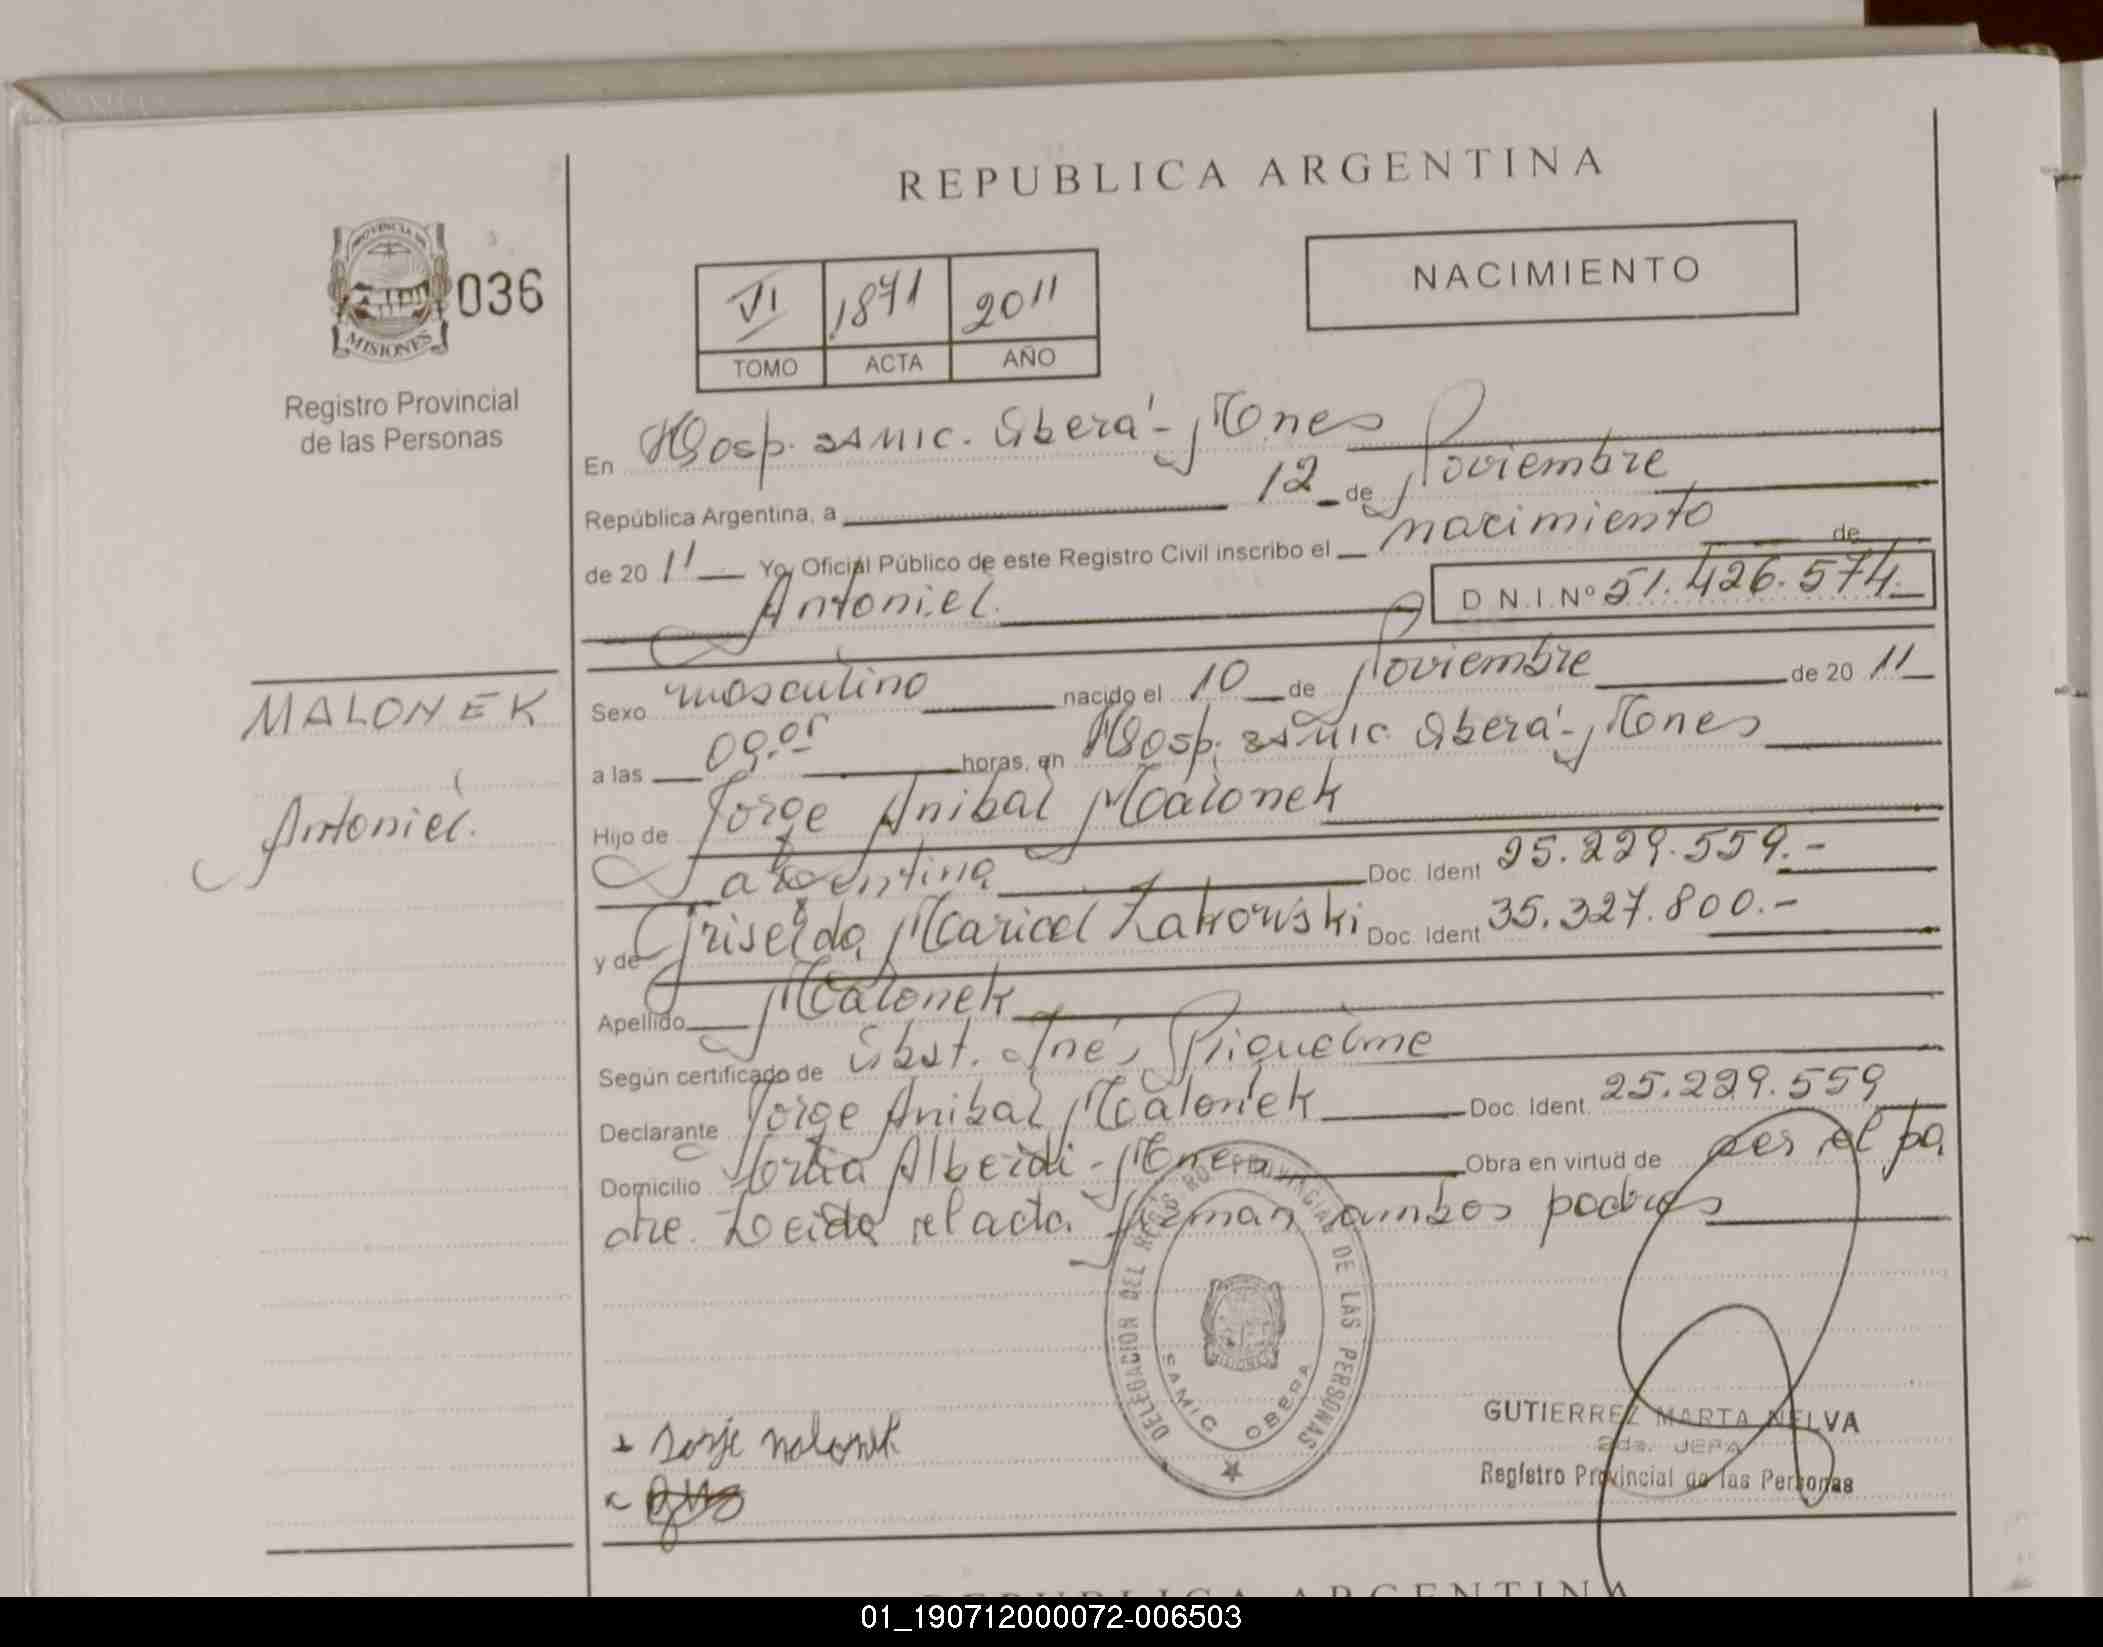 REPUBLICA ARGENTINA
PROVINCIA DE
MISIONES
036
Registro Provincial
de las Personas
VI 1871 2011
TOMO ACTA AÑO
NACIMIENTO
En Hosp. SAMIC. Oberá - Mnes
República Argentina, a 12 de Noviembre
de 20 11 Yo, Oficial Público de este Registro Civil inscribo el nacimiento de
Antoniel.
D.N.I. Nº 51.426.574.
MALONEK
Antoniel.
Sexo masculino nacido el 10 de Noviembre de 20 11
a las 09.05 horas, en Hosp. SAMIC. Oberá - Mnes
Hijo de Jorge Anibal Malonek
argentina Doc. Ident 25.229.559.-
y de Griselda Maricel Zakowski Doc. Ident 35.327.800.-
Apellido Malonek
Según certificado de Obst. Riquelme
Declarante Jorge Anibal Malonek Doc. Ident. 25.229.559
Domicilio Alberdi - Mnes Obra en virtud de ser el pa
dre. Leida el acta firman ambos padres
DELEGACION DEL REGISTRO PROVINCIAL DE LAS PERSONAS
SAMIC OBERA
Jorje Malonek
GUTIERREZ MARTA NELVA
2da. JEFA
Registro Provincial de las Personas
REPUBLICA ARGENTINA
01_190712000072-006503